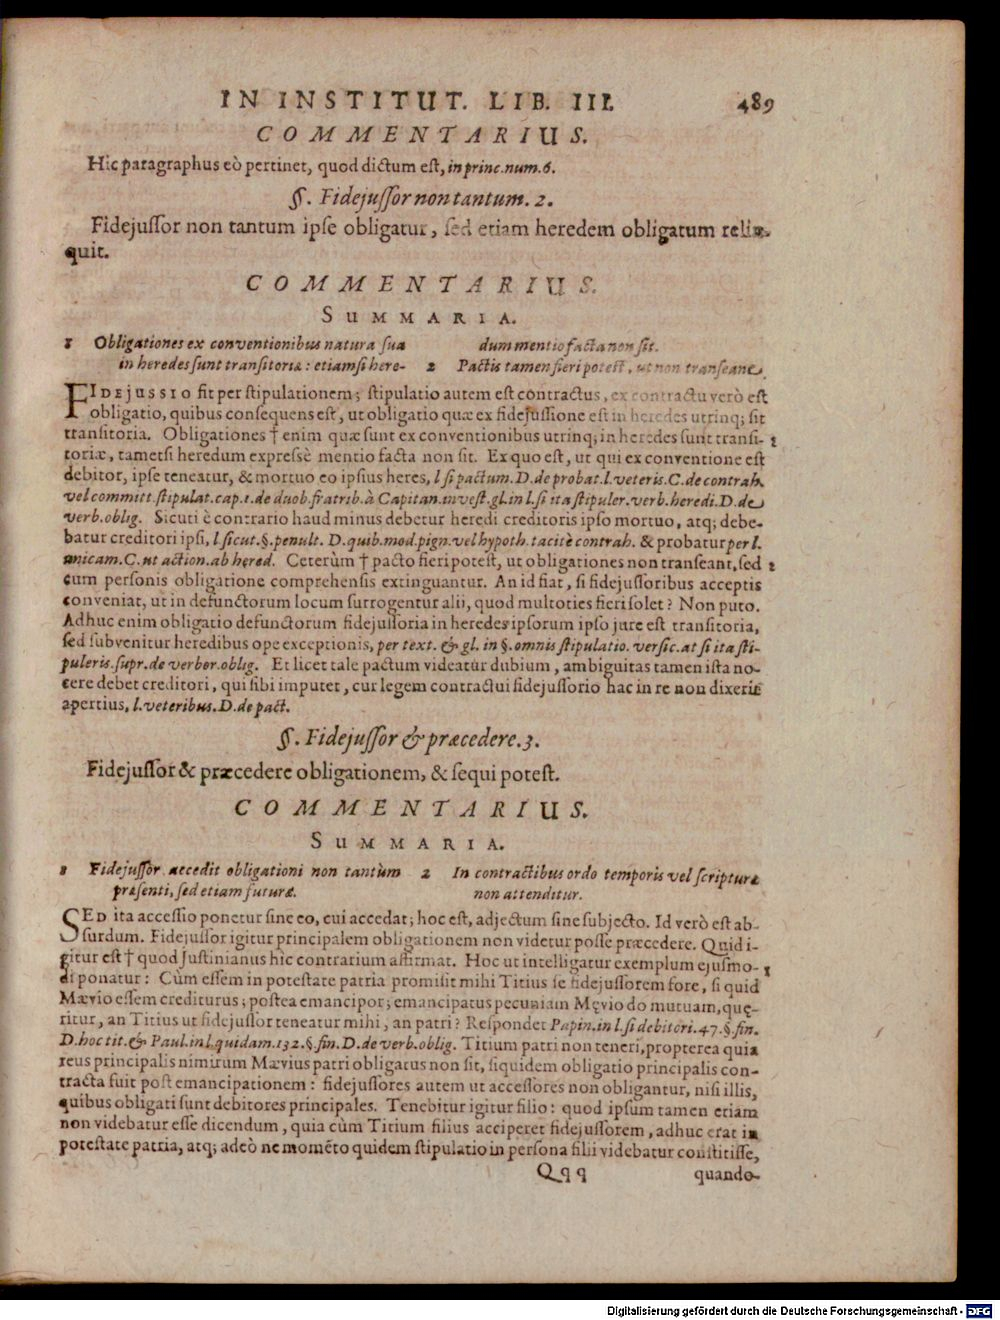 IN INSTITUT. LIB. III. 489
COMMENTARIUS.
Hic paragraphus eò pertinet, quod dictum est, in princ. num. 6.
§. Fidejussor non tantum. 2.
Fidejussor non tantum ipse obligatur, sed etiam heredem obligatum relin-
quit.
COMMENTARIUS.
SUMMARIA.
1 Obligationes ex conventionibus natura sua
in heredes sunt transitoriæ: etiamsi here-
dum mentio facta non sit.
2 Pactis tamen fieri potest, ut non transeant.
FIDEJUSSIO fit per stipulationem; stipulatio autem est contractus, ex contractu verò est
obligatio, quibus consequens est, ut obligatio quæ ex fidejussione est in heredes utrinq; sit
transitoria. Obligationes † enim quæ sunt ex conventionibus utrinq; in heredes sunt transi- 1
toriæ, tametsi heredum expressè mentio facta non sit. Ex quo est, ut qui ex conventione est
debitor, ipse teneatur, & mortuo eo ipsius heres, l si pactum. D. de probat. l. veteris. C. de contrah.
vel committ. stipulat. cap. 1. de duob. fratrib. à Capitan. invest. gl. in l. si ita stipuler. verb. heredi. D. de
verb. oblig. Sicuti è contrario haud minus debetur heredi creditoris ipso mortuo, atq; debe-
batur creditori ipsi, l sicut. §. penult. D. quib. mod. pign. vel hypoth. tacitè contrah. & probatur per l.
unicam. C. ut action. ab hered. Ceterùm † pacto fieri potest, ut obligationes non transeant, sed 2
cum personis obligatione comprehensis extinguantur. An id fiat, si fidejussoribus acceptis
conveniat, ut in defunctorum locum surrogentur alii, quod multoties fieri solet? Non puto.
Adhuc enim obligatio defunctorum fidejussoria in heredes ipsorum ipso jure est transitoria,
sed subvenitur heredibus ope exceptionis, per text. & gl. in §. omnis stipulatio. versic. at si ita sti-
puleris. supr. de verbor. oblig. Et licet tale pactum videatur dubium, ambiguitas tamen ista no-
cere debet creditori, qui sibi imputet, cur legem contractui fidejussorio hac in re non dixerit
apertius, l. veteribus. D. de pact.
§. Fidejussor & præcedere. 3.
Fidejussor & præcedere obligationem, & sequi potest.
COMMENTARIUS.
SUMMARIA.
1 Fidejussor accedit obligationi non tantùm
præsenti, sed etiam futuræ.
2 In contractibus ordo temporis vel scripturæ
non attenditur.
SED ita accessio ponetur sine eo, cui accedat; hoc est, adjectum sine subjecto. Id verò est ab-
surdum. Fidejussor igitur principalem obligationem non videtur posse præcedere. Quid i-
gitur est † quod Justinianus hîc contrarium affirmat. Hoc ut intelligatur exemplum ejusmo- 1
di ponatur: Cùm essem in potestate patria promisit mihi Titius se fidejussorem fore, si quid
Mævio essem crediturus; postea emancipor; emancipatus pecuniam Męvio do mutuam, quę-
ritur, an Titius ut fidejussor teneatur mihi, an patri? Respondet Papin. in l. si debitori. 47. §. fin.
D. hoc tit. & Paul. in l. quidam. 132. §. fin. D. de verb. oblig. Titium patri non teneri, propterea quia
reus principalis nimirum Mævius patri obligatus non sit, siquidem obligatio principalis con-
tracta fuit post emancipationem: fidejussores autem ut accessores non obligantur, nisi illis,
quibus obligati sunt debitores principales. Tenebitur igitur filio: quod ipsum tamen etiam
non videbatur esse dicendum, quia cùm Titium filius acciperet fidejussorem, adhuc erat in
potestate patria, atq; adeò ne momēto quidem stipulatio in persona filii videbatur constitisse,
Qqq quando-
Digitalisierung gefördert durch die Deutsche Forschungsgemeinschaft - DFG